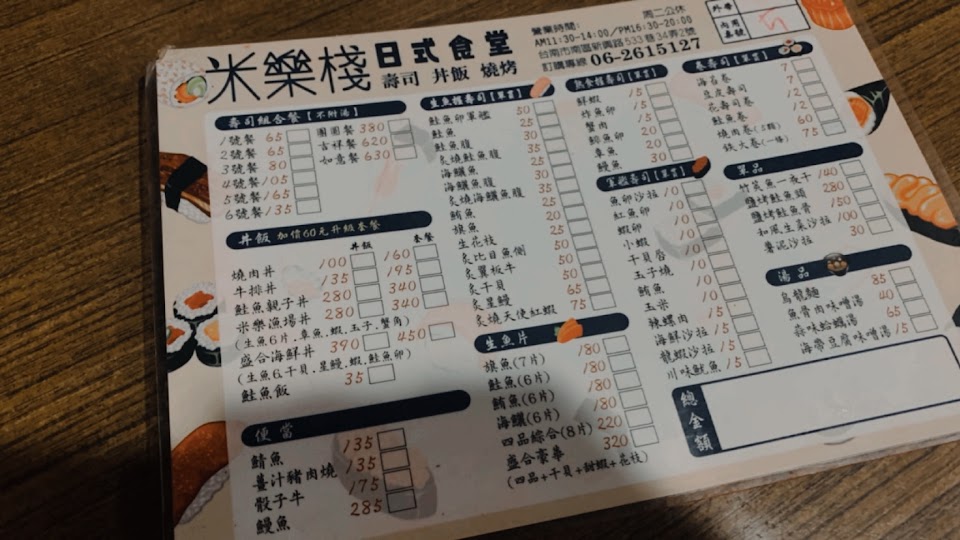 米樂棧 日式食堂
壽司 丼飯 燒烤
周二公休
營業時間:
AM11:30-14:00/PM16:30-20:00
台南市南區新興路533巷34弄2號
訂購專線 06-2615127
外帶
內用
桌號
壽司組合餐【不附湯】
1號餐 65
2號餐 65
3號餐 80
4號餐 105
5號餐 65
6號餐 135
團圓餐 380
吉祥餐 620
如意餐 630
丼飯 加價60元升級套餐
丼飯 套餐
燒肉丼 100 160
牛排丼 135 195
鮭魚親子丼 280 340
米樂漁場丼 280 340
(生魚6片.章魚.蝦.玉子.蟹角)
盛合海鮮丼 390 450
(生魚6.干貝.星鰻.蝦.鮭魚卵)
鮭魚飯 35
便當
鯖魚 135
薑汁豬肉燒 135
骰子牛 175
鰻魚 285
生魚握壽司【單貫】
鮭魚卵軍艦 50
鮭魚 25
鮭魚腹 30
炙燒鮭魚腹 35
海鱺魚 25
海鱺魚腹 30
炙燒海鱺魚腹 35
鮪魚 25
旗魚 20
生花枝 25
炙比目魚側 50
炙翼板牛 50
炙干貝 50
炙星鰻 65
炙燒天使紅蝦 75
生魚片
旗魚(7片) 180
鮭魚(6片) 180
鮪魚(6片) 180
海鱺(6片) 180
四品綜合(8片) 220
盛合豪華 320
(四品+干貝+甜蝦+花枝)
熟食握壽司【單貫】
鮮蝦 15
炸魚卵 15
蟹肉 15
鯡魚卵 20
章魚 20
鰻魚 30
軍艦壽司【單貫】
魚卵沙拉 10
紅魚卵 10
蝦卵 10
小蝦 10
干貝唇 10
玉子燒 10
鮪魚 10
玉米 10
辣螺肉 15
海鮮沙拉 15
龍蝦沙拉 15
川味魷魚 15
卷壽司【單貫】
海苔卷 7
豆皮壽司 7
花壽司卷 12
鮭魚卷 12
燒肉卷(5顆) 60
鐵火卷(一條) 75
單品
竹筴魚一夜干 140
鹽烤鮭魚頭 280
鹽烤鮭魚骨 150
和風生菜沙拉 100
薯泥沙拉 30
湯品
烏龍麵 85
魚骨肉味噌湯 40
蒜味蛤蠣湯 65
海帶豆腐味噌湯 15
總金額